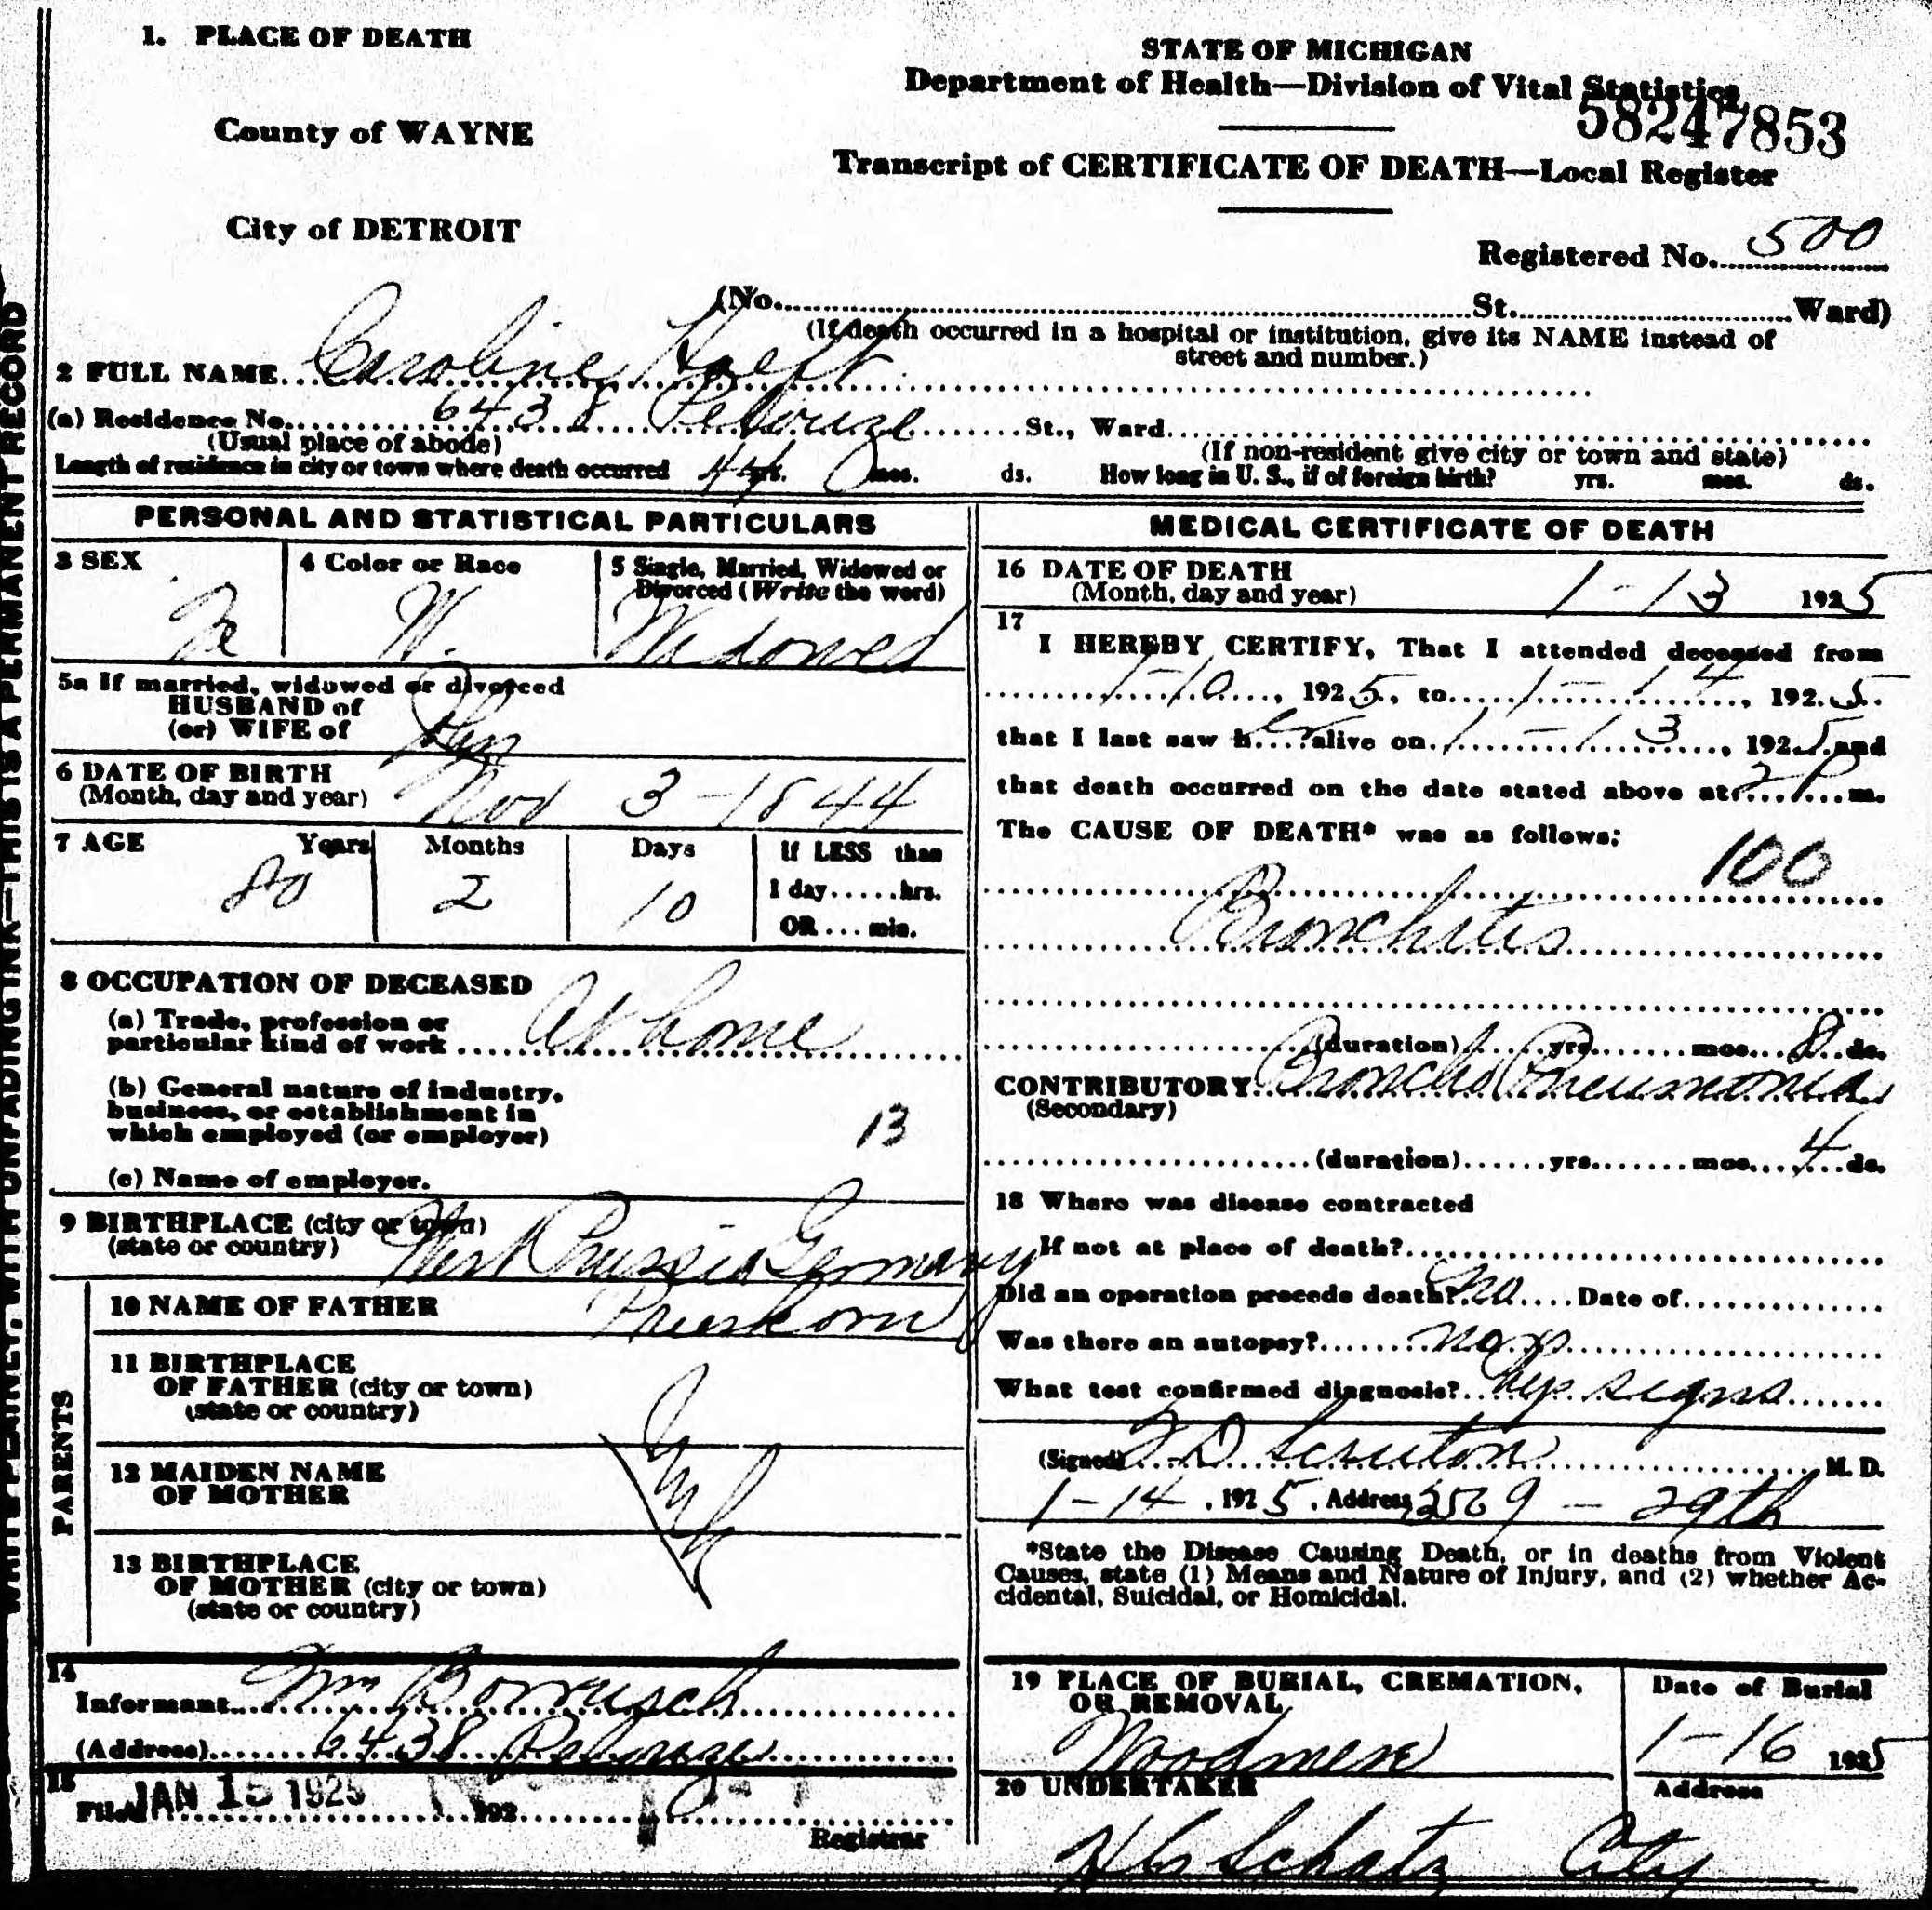 1. PLACE OF DEATH
County of WAYNE
City of DETROIT
STATE OF MICHIGAN
Department of Health—Division of Vital Statistics
58247853
Transcript of CERTIFICATE OF DEATH—Local Register
Registered No. 500
(No. St. Ward)
(If death occurred in a hospital or institution, give its NAME instead of
street and number.)
2 FULL NAME Caroline Hoeft
(a) Residence No. 6438 Pelouze St., Ward
(Usual place of abode) (If non-resident give city or town and state)
Length of residence in city or town where death occurred 44 yrs. 0 mos. ds. How long in U. S., if of foreign birth? yrs. mos. ds.
PERSONAL AND STATISTICAL PARTICULARS
3 SEX
Fe
4 Color or Race
W.
5 Single, Married, Widowed or
Divorced (Write the word)
Widowed
5a If married, widowed or divorced
HUSBAND of
(or) WIFE of
6 DATE OF BIRTH
(Month, day and year) Nov 3-1844
7 AGE Years Months Days If LESS than
80 2 10
1 day......hrs.
OR....min.
8 OCCUPATION OF DECEASED
(a) Trade, profession or
particular kind of work At home
(b) General nature of industry,
business, or establishment in
which employed (or employer)
13
(c) Name of employer.
9 BIRTHPLACE (city or town)
(state or country) West Prussia Germany
PARENTS
10 NAME OF FATHER Prieskorn
11 BIRTHPLACE
OF FATHER (city or town)
(state or country)
12 MAIDEN NAME
OF MOTHER
13 BIRTHPLACE
OF MOTHER (city or town)
(state or country)
14
Informant Borrusch
(Address) 6438 Pelouze
15
Filed JAN 15 1925 192
Registrar
MEDICAL CERTIFICATE OF DEATH
16 DATE OF DEATH
(Month, day and year) 1-13 1925
17
I HEREBY CERTIFY, That I attended deceased from
1-10, 1925, to 1-14, 1925
that I last saw her alive on 1-13, 1925 and
that death occurred on the date stated above at 2 P m.
The CAUSE OF DEATH* was as follows:
100
Bronchitis
(duration) yrs. mos. 8 ds.
CONTRIBUTORY Broncho Pneumonia
(Secondary)
(duration) yrs. mos. 4 ds.
18 Where was disease contracted
If not at place of death?
Did an operation precede death? no Date of
Was there an autopsy? no
What test confirmed diagnosis? signs
(Signed) Scruton M. D.
1-14, 1925, Address 2509 - 29th
*State the Disease Causing Death, or in deaths from Violent
Causes, state (1) Means and Nature of Injury, and (2) whether Ac-
cidental, Suicidal, or Homicidal.
19 PLACE OF BURIAL, CREMATION,
OR REMOVAL
Woodmere
Date of Burial
1-16 1925
20 UNDERTAKER
Address
Schatz City
WRITE PLAINLY, WITH UNFADING INK—THIS IS A PERMANENT RECORD